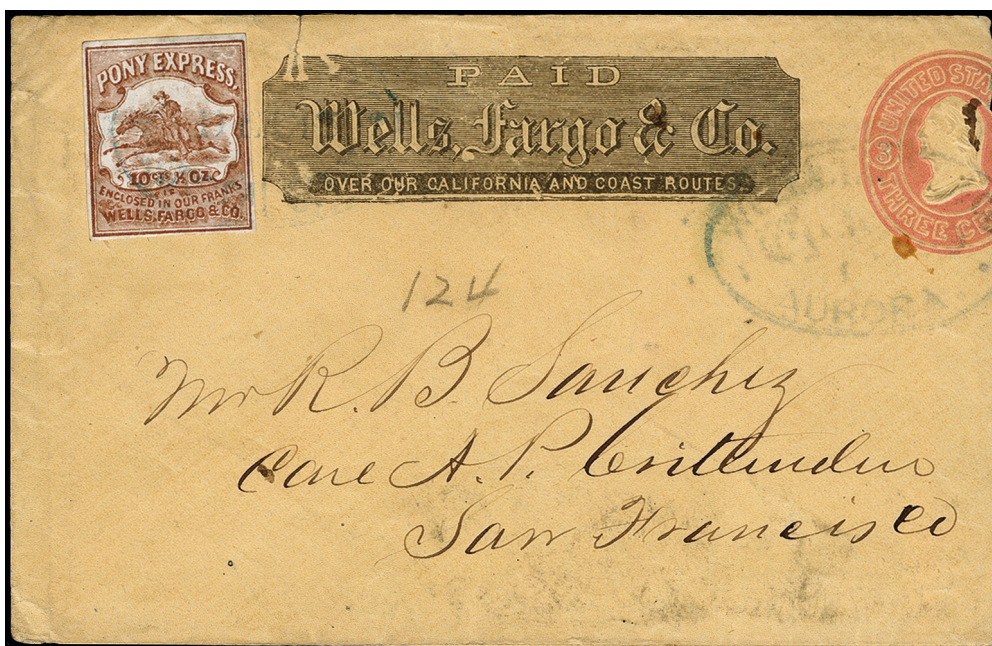 PONY EXPRESS.
10 cts ½ OZ.
ENCLOSED IN OUR FRANKS
WELLS, FARGO & CO.
PAID
Wells, Fargo & Co.
OVER OUR CALIFORNIA AND COAST ROUTES.
UNITED STA
3
THREE CE
AURORA
124
Mr R. B. Sanchez
Care A. P. Crittenden
San Francisco